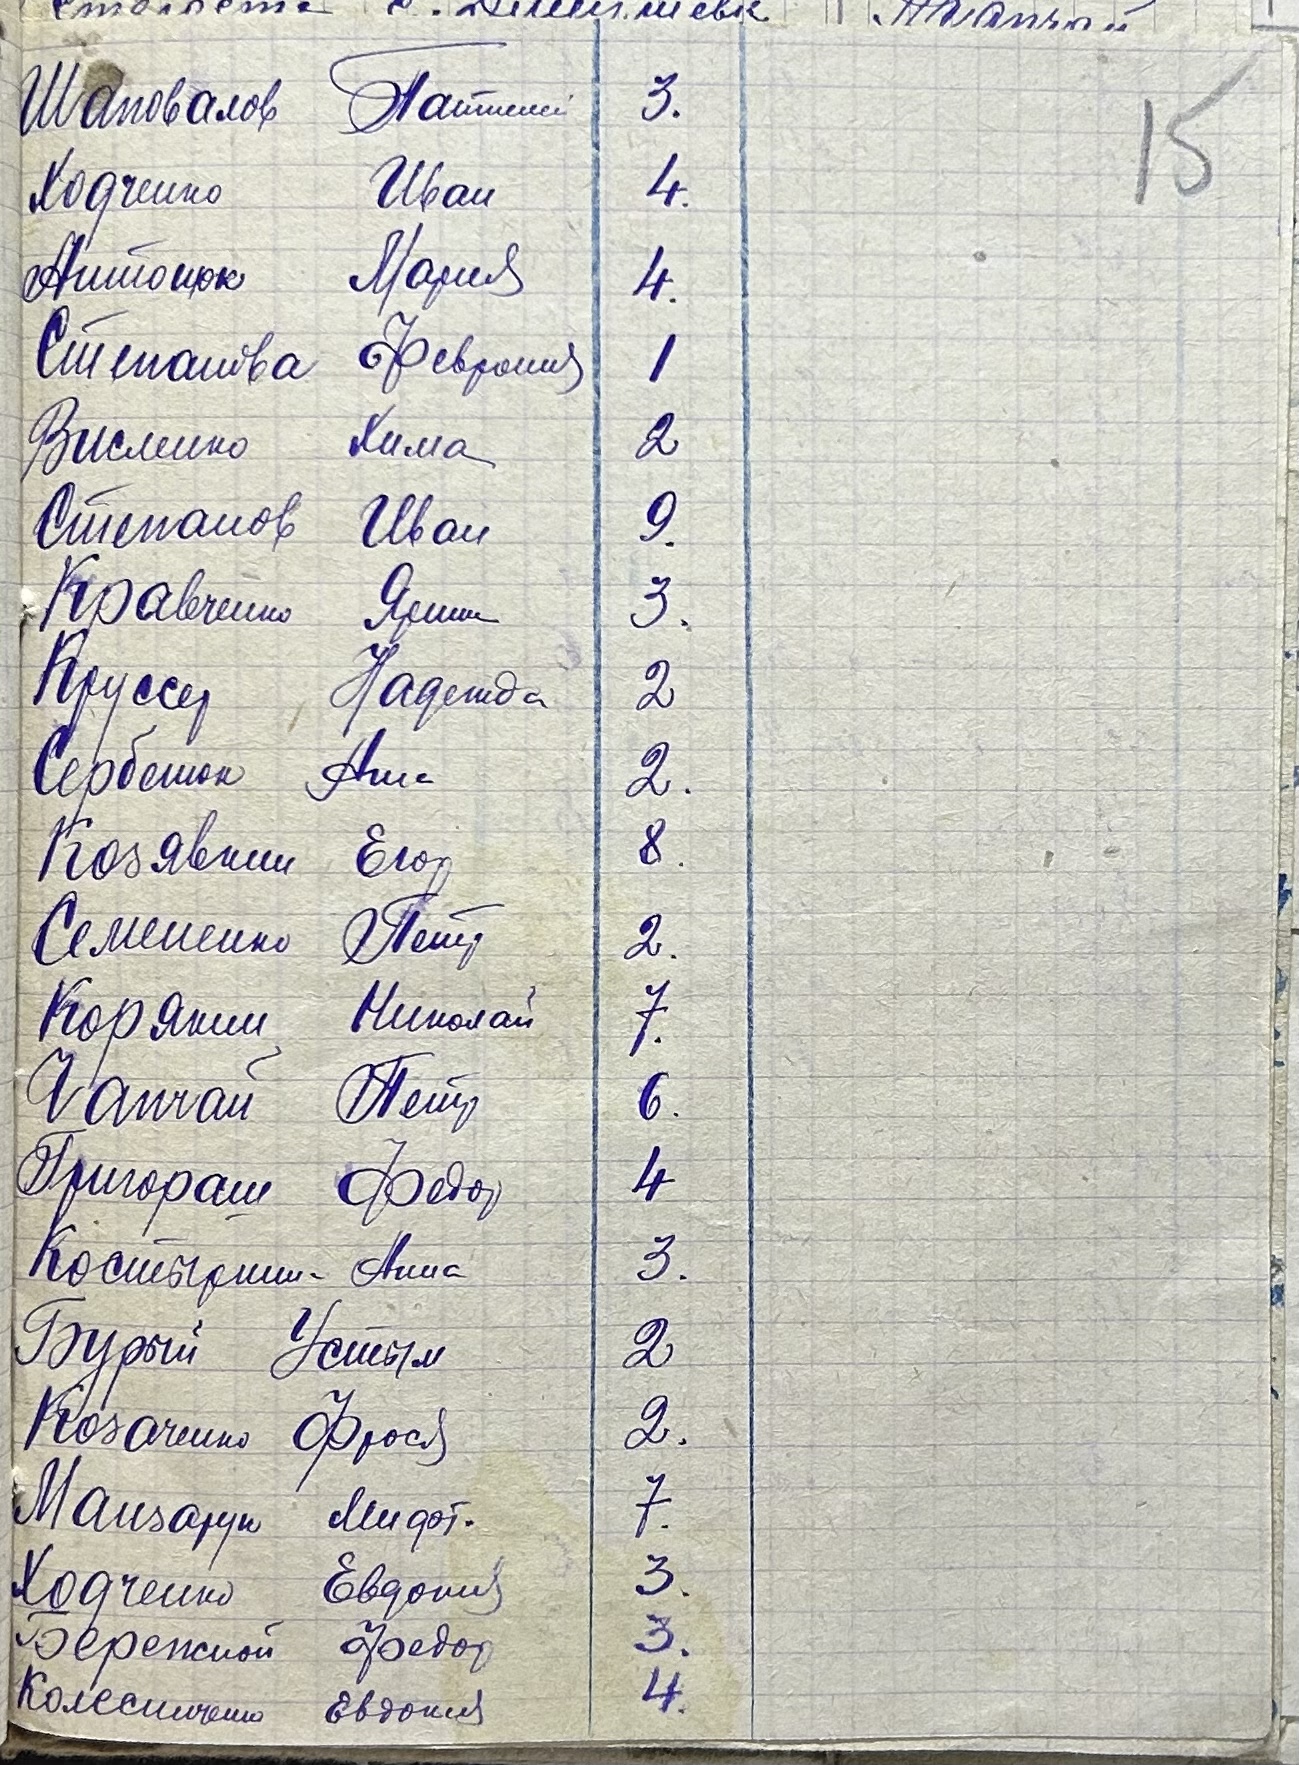 15
Шаповалов 3.
Ходченко Иван 4.
Антонюк Мария 4.
Степанова Феврония 1
Висленко Хима 2
Степанов Иван 9.
Кравченко Ярина 3.
Круссер Надежда 2
Сербенюк Анна 2.
Козявкин Егор 8.
Семененко Петр 2.
Корякин Николай 7.
Чапчай Петр 6.
Григораш Федор 4
Костыркина Анна 3.
Бурый Устым 2
Козаченко Фрося 2.
Манзарук 7.
Ходченко Евдокия 3.
Бережной Федор 3.
Колесниченко Евдокия 4.